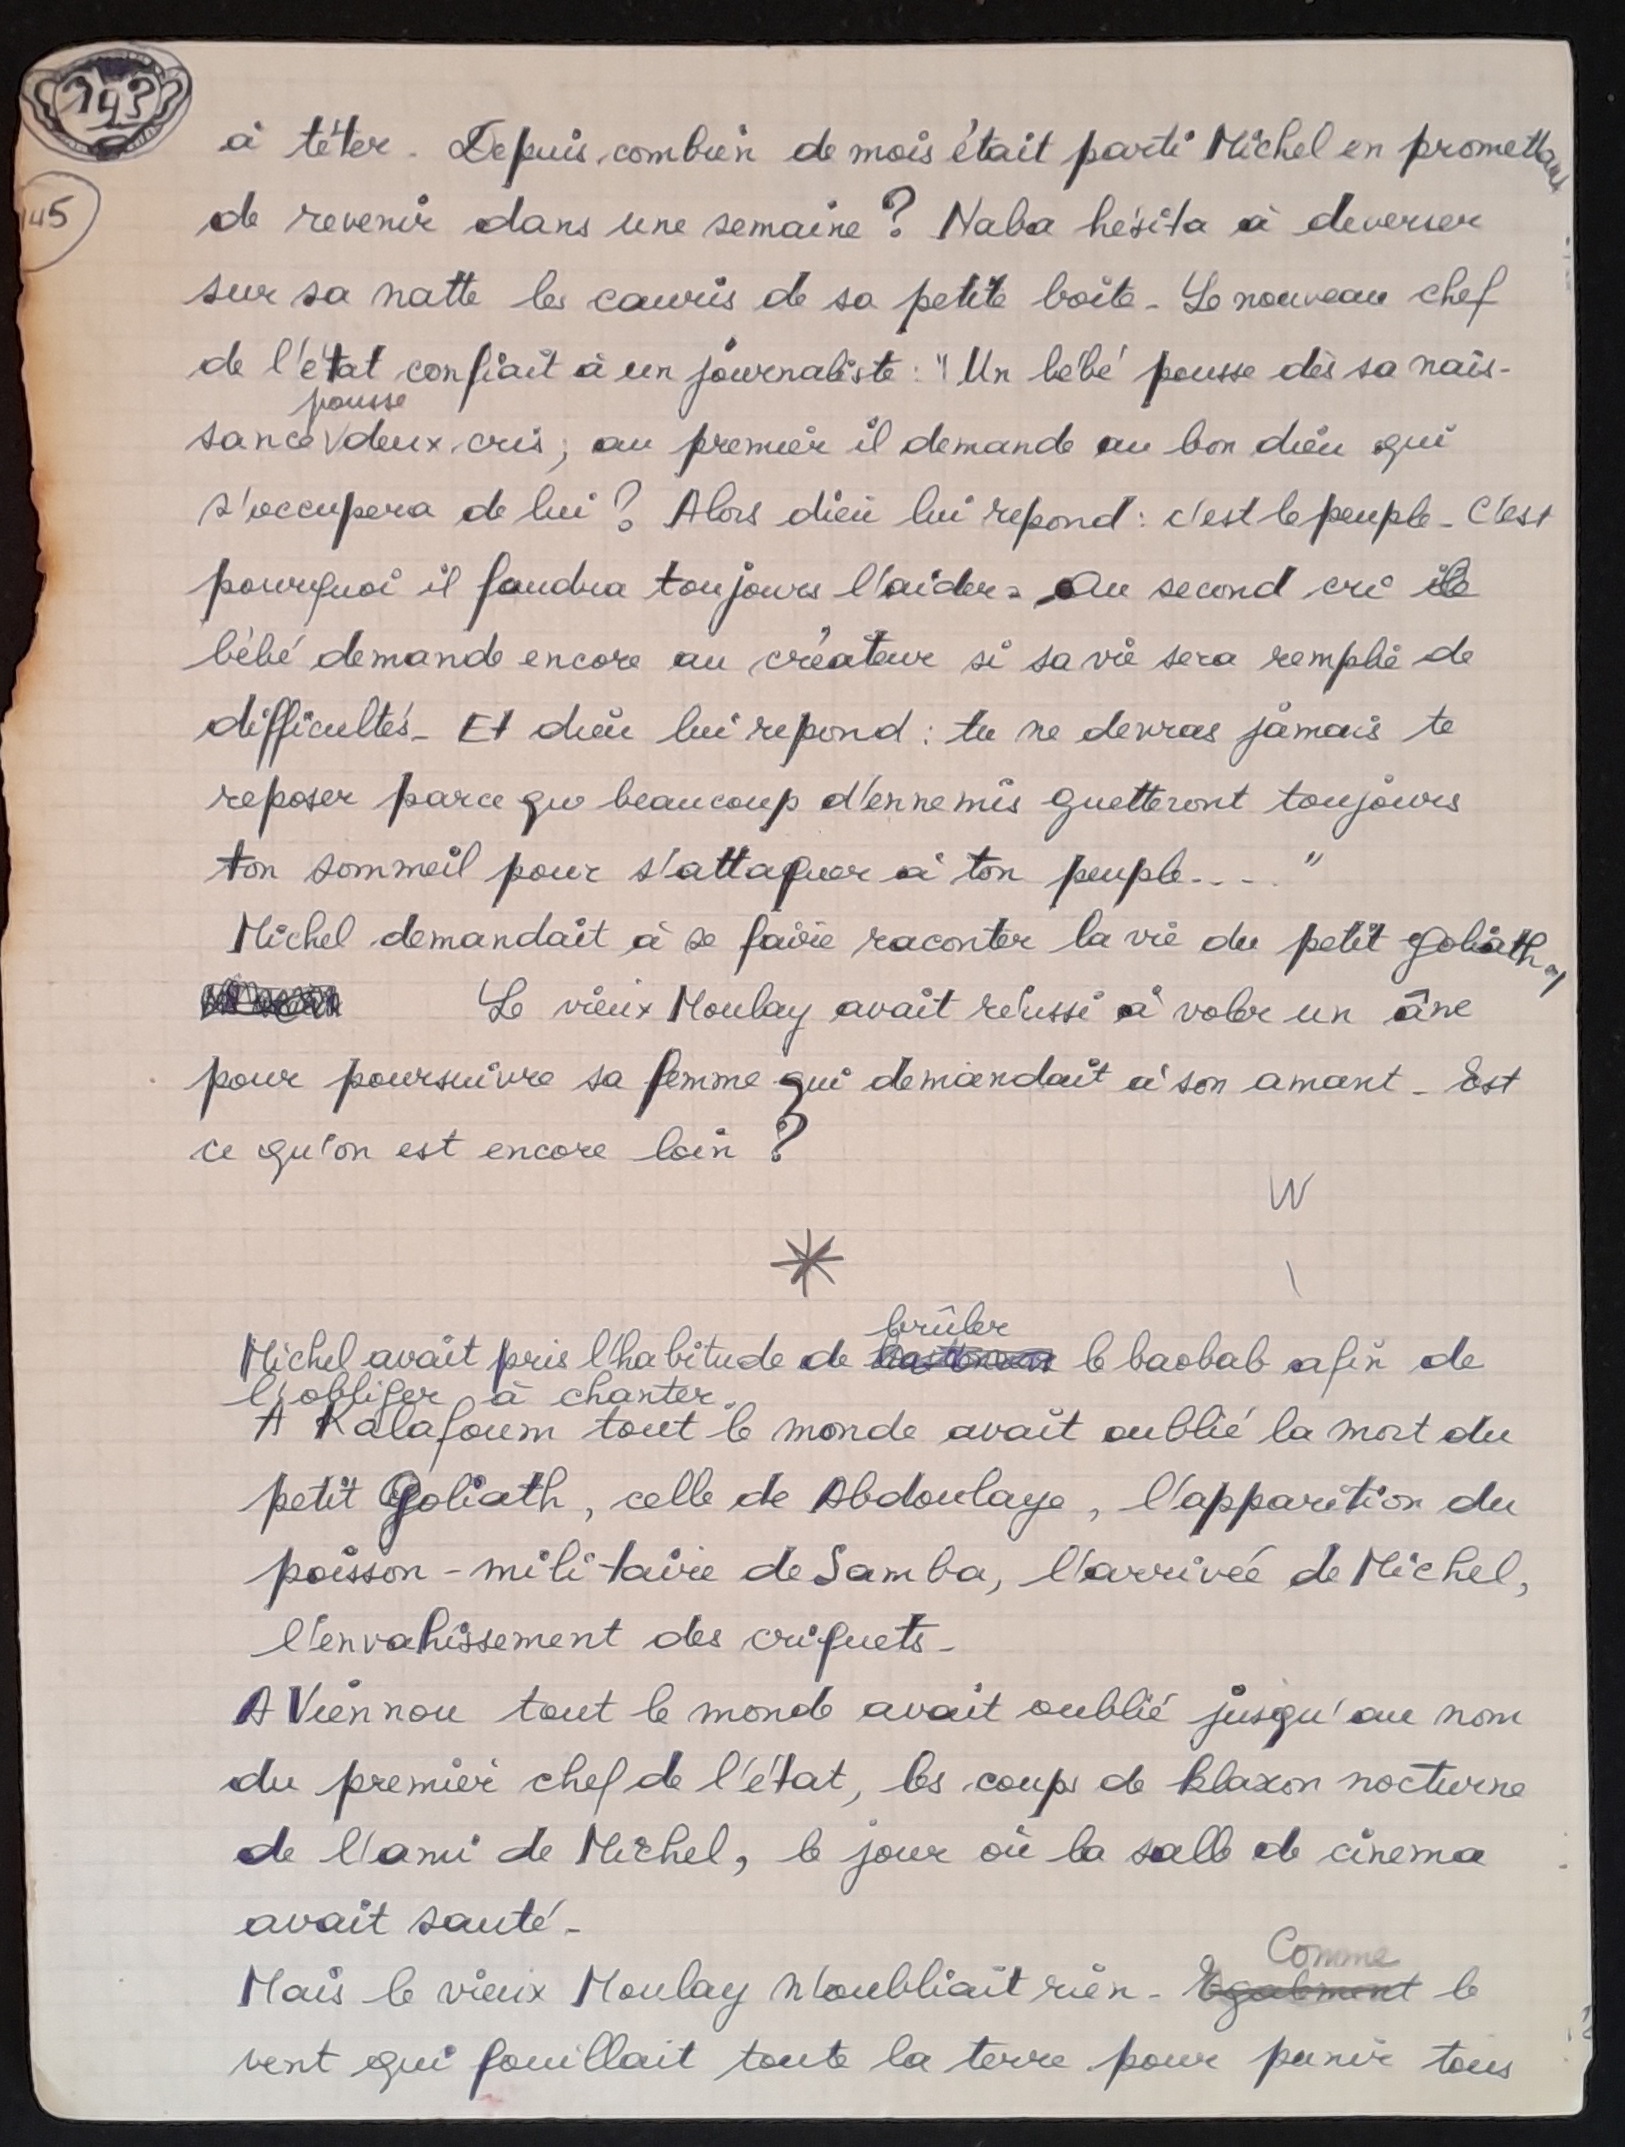 143
145
à têter. Depuis combien de mois était parti Michel en promettant
de revenir dans une semaine ? Naba hésita à deverser
sur sa natte les cauris de sa petite boîte. Le nouveau chef
de l'état confiait à un journaliste : "Un bébé pousse dès sa nais-
pousse
sance deux cris ; au premier il demande au bon dieu qui
s'occupera de lui ? Alors dieu lui repond : c'est le peuple. C'est
pourquoi il faudra toujours l'aider. Au second cri le
bébé demande encore au créateur si sa vie sera remplie de
difficultés. Et dieu lui repond : tu ne devras jamais te
reposer parce que beaucoup d'ennemis guetteront toujours
ton sommeil pour s'attaquer à ton peuple...."
Michel demandait à se faire raconter la vie du petit Goliath,
Le vieux Moulay avait réussi à voler un âne
pour poursuivre sa femme qui demandait à son amant. Est
ce qu'on est encore loin ?
W
*
brûler
Michel avait pris l'habitude de le baobab afin de
l'obliger à chanter.
A Kalafoum tout le monde avait oublié la mort du
petit Goliath, celle de Abdoulaye, l'apparition du
poisson-militaire de Samba, l'arrivée de Michel,
l'envahissement des criquets.
A Viennou tout le monde avait oublié jusqu'au nom
du premier chef de l'état, les coups de klaxon nocturne
de l'ami de Michel, le jour où la salle de cinema
avait sauté.
Comme
Mais le vieux Moulay n'oubliait rien. Egalement le
vent qui fouillait toute la terre pour punir tous